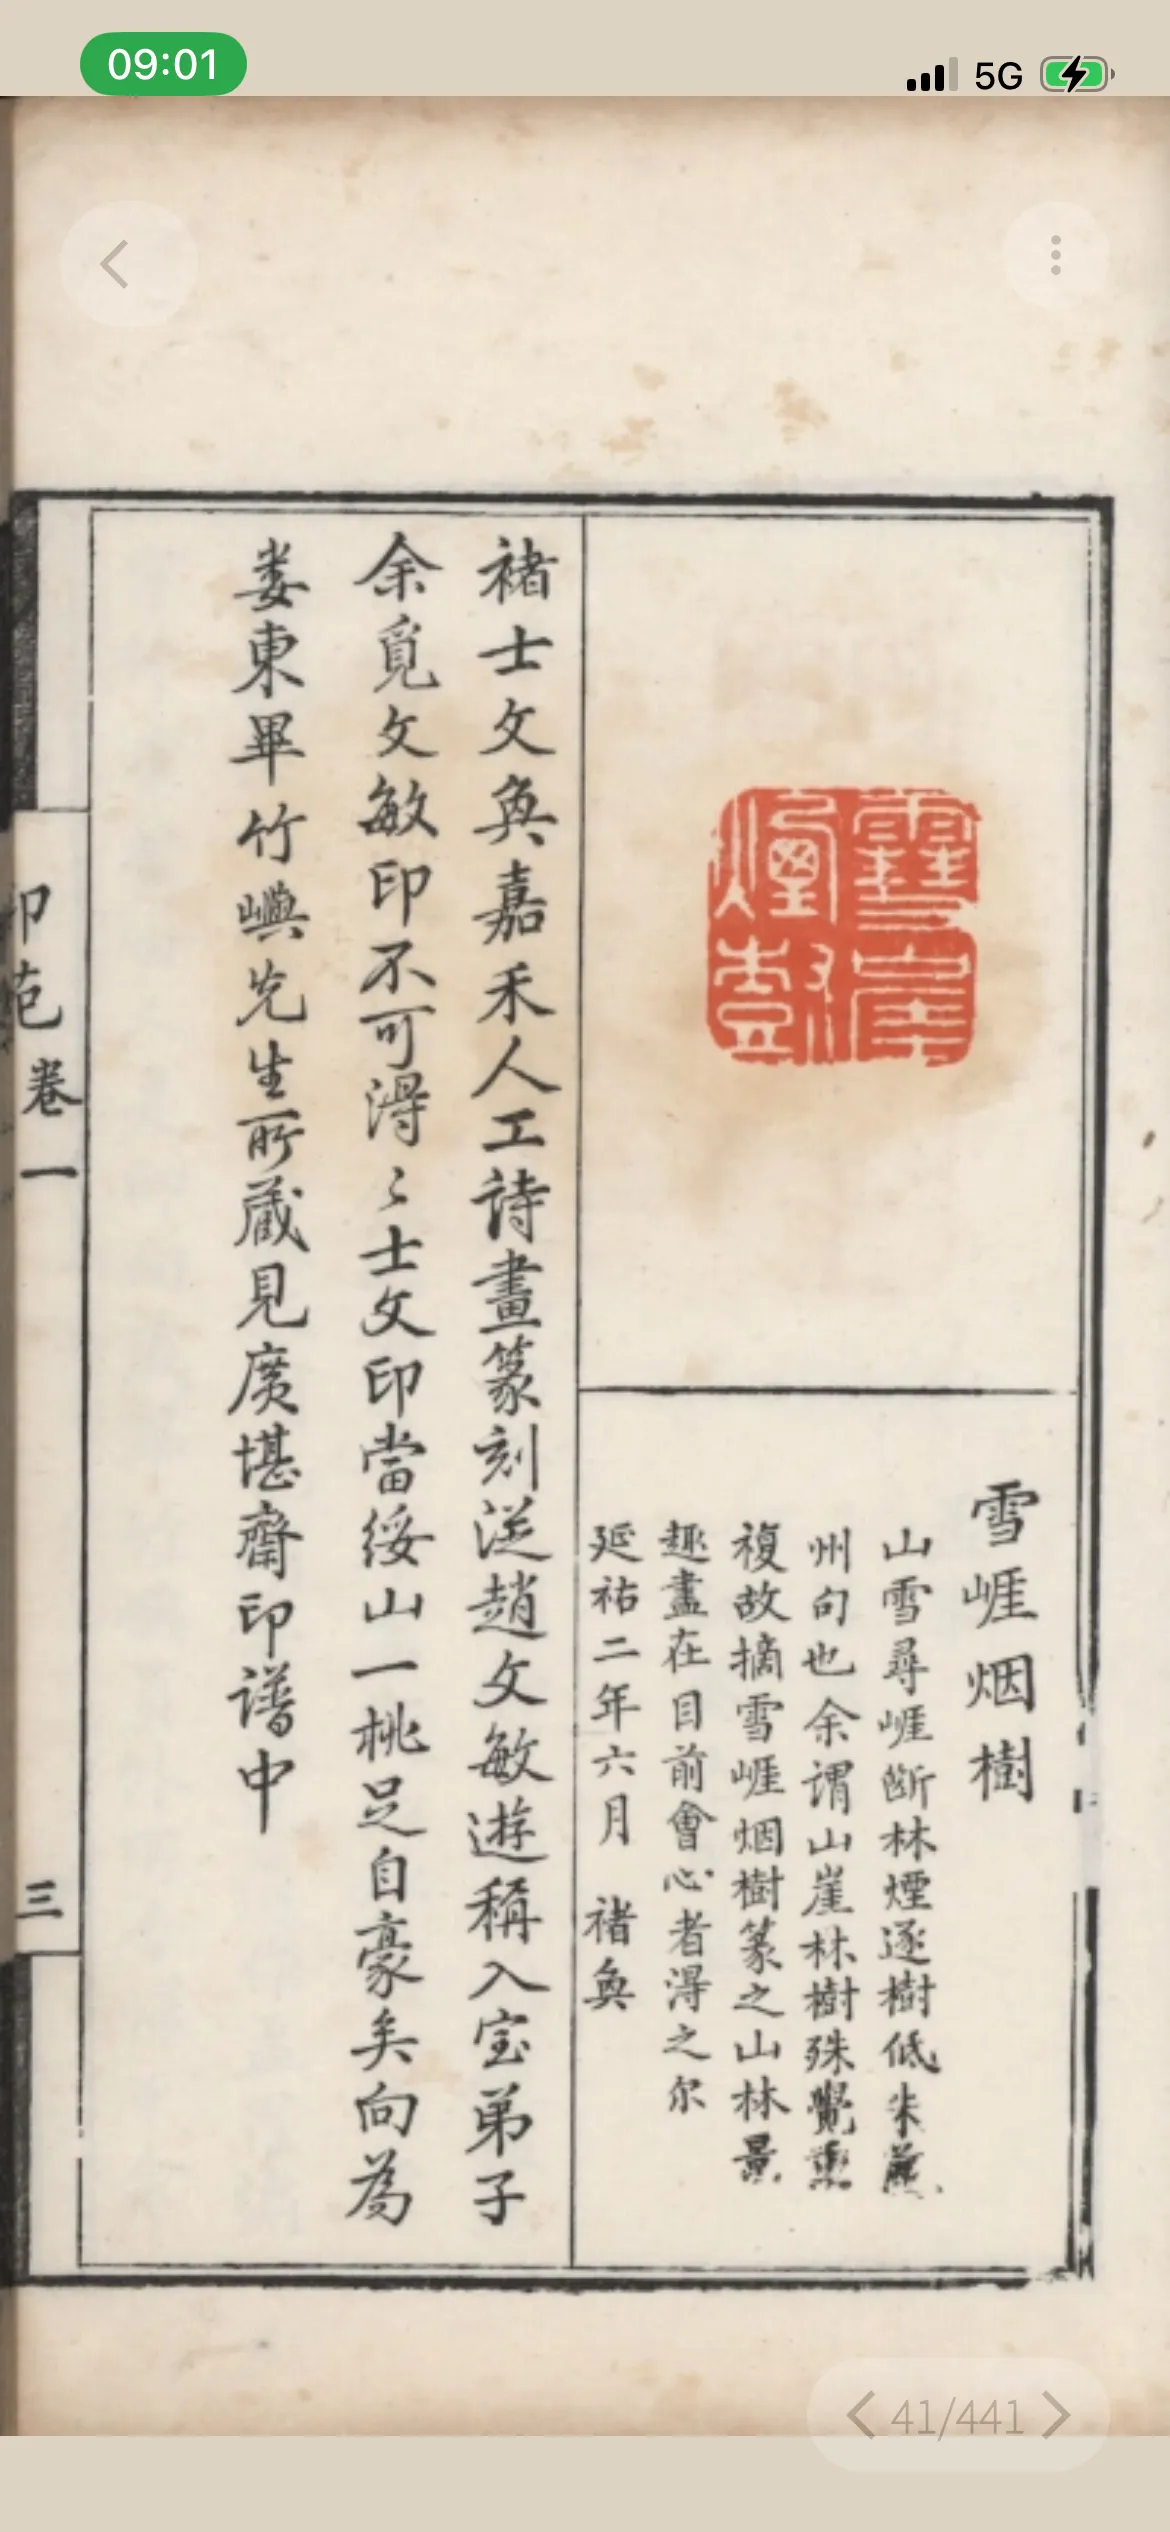 09:01
5G
雪崕烟樹
山雪尋崕斷林煙逐樹低朱慶
州句也余謂山崖林樹殊覺重
複故摘雪崕烟樹篆之山林景
趣盡在目前會心者淂之尔
延祐二年六月 褚奐
褚士文奐嘉禾人工诗畫篆刻從趙文敏遊稱入宝弟子
余覓文敏印不可淂〻士文印當綏山一桃足自豪矣向為
婁東畢竹嶼先生所藏見廣堪齋印谱中
卷一
三
41/441